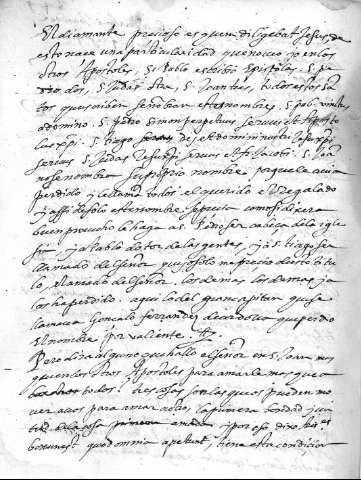 El diamante precioso es quem diligebat Jesus, de
esto nace una particularidad que no veo yo en los
otros Apostoles, S. Pablo escribio Epistolas. S. pe
dro dos, S. Judas otra, S. Joan tres, todos estos san
tos que escriben señalan estos nombres. S. pablo vinctus
domino. S. pedro simon petrus servus et Apostolus
xpi. S. tiago dei et domini nostri Jesu xpi
servus S. Judas Jesu xpi servus et fr Jacobi. S. Joa
no se nombra su proprio nombre, porque le avia
perdido y le llaman todos el querido e Regalado
y assi de solo este nombre se precia como si dixera
buen provecho le haga a S. Pedro ser cabeça de la igle
sia y a Pablo dotor de las gentes, y a S. tiago ser
llamado del señor que yo solo me precio deste titu
lo, el amado del señor. los demas los demas ya
los he perdido. aqui lo del gran capitan que se
llamava Gonzalo fernandez de cordova que perdio
el nombre por valiente
Pero dira alguno que hallo el señor en S. Joan mas
que en los otros Apostoles para amarle mas que a
todos? tres cosas son las que os pueden mo
ver a vos para amar a dios, la primera bondad
y por eso dixo
bonum est quod omnia apetunt, tiene esta condicion